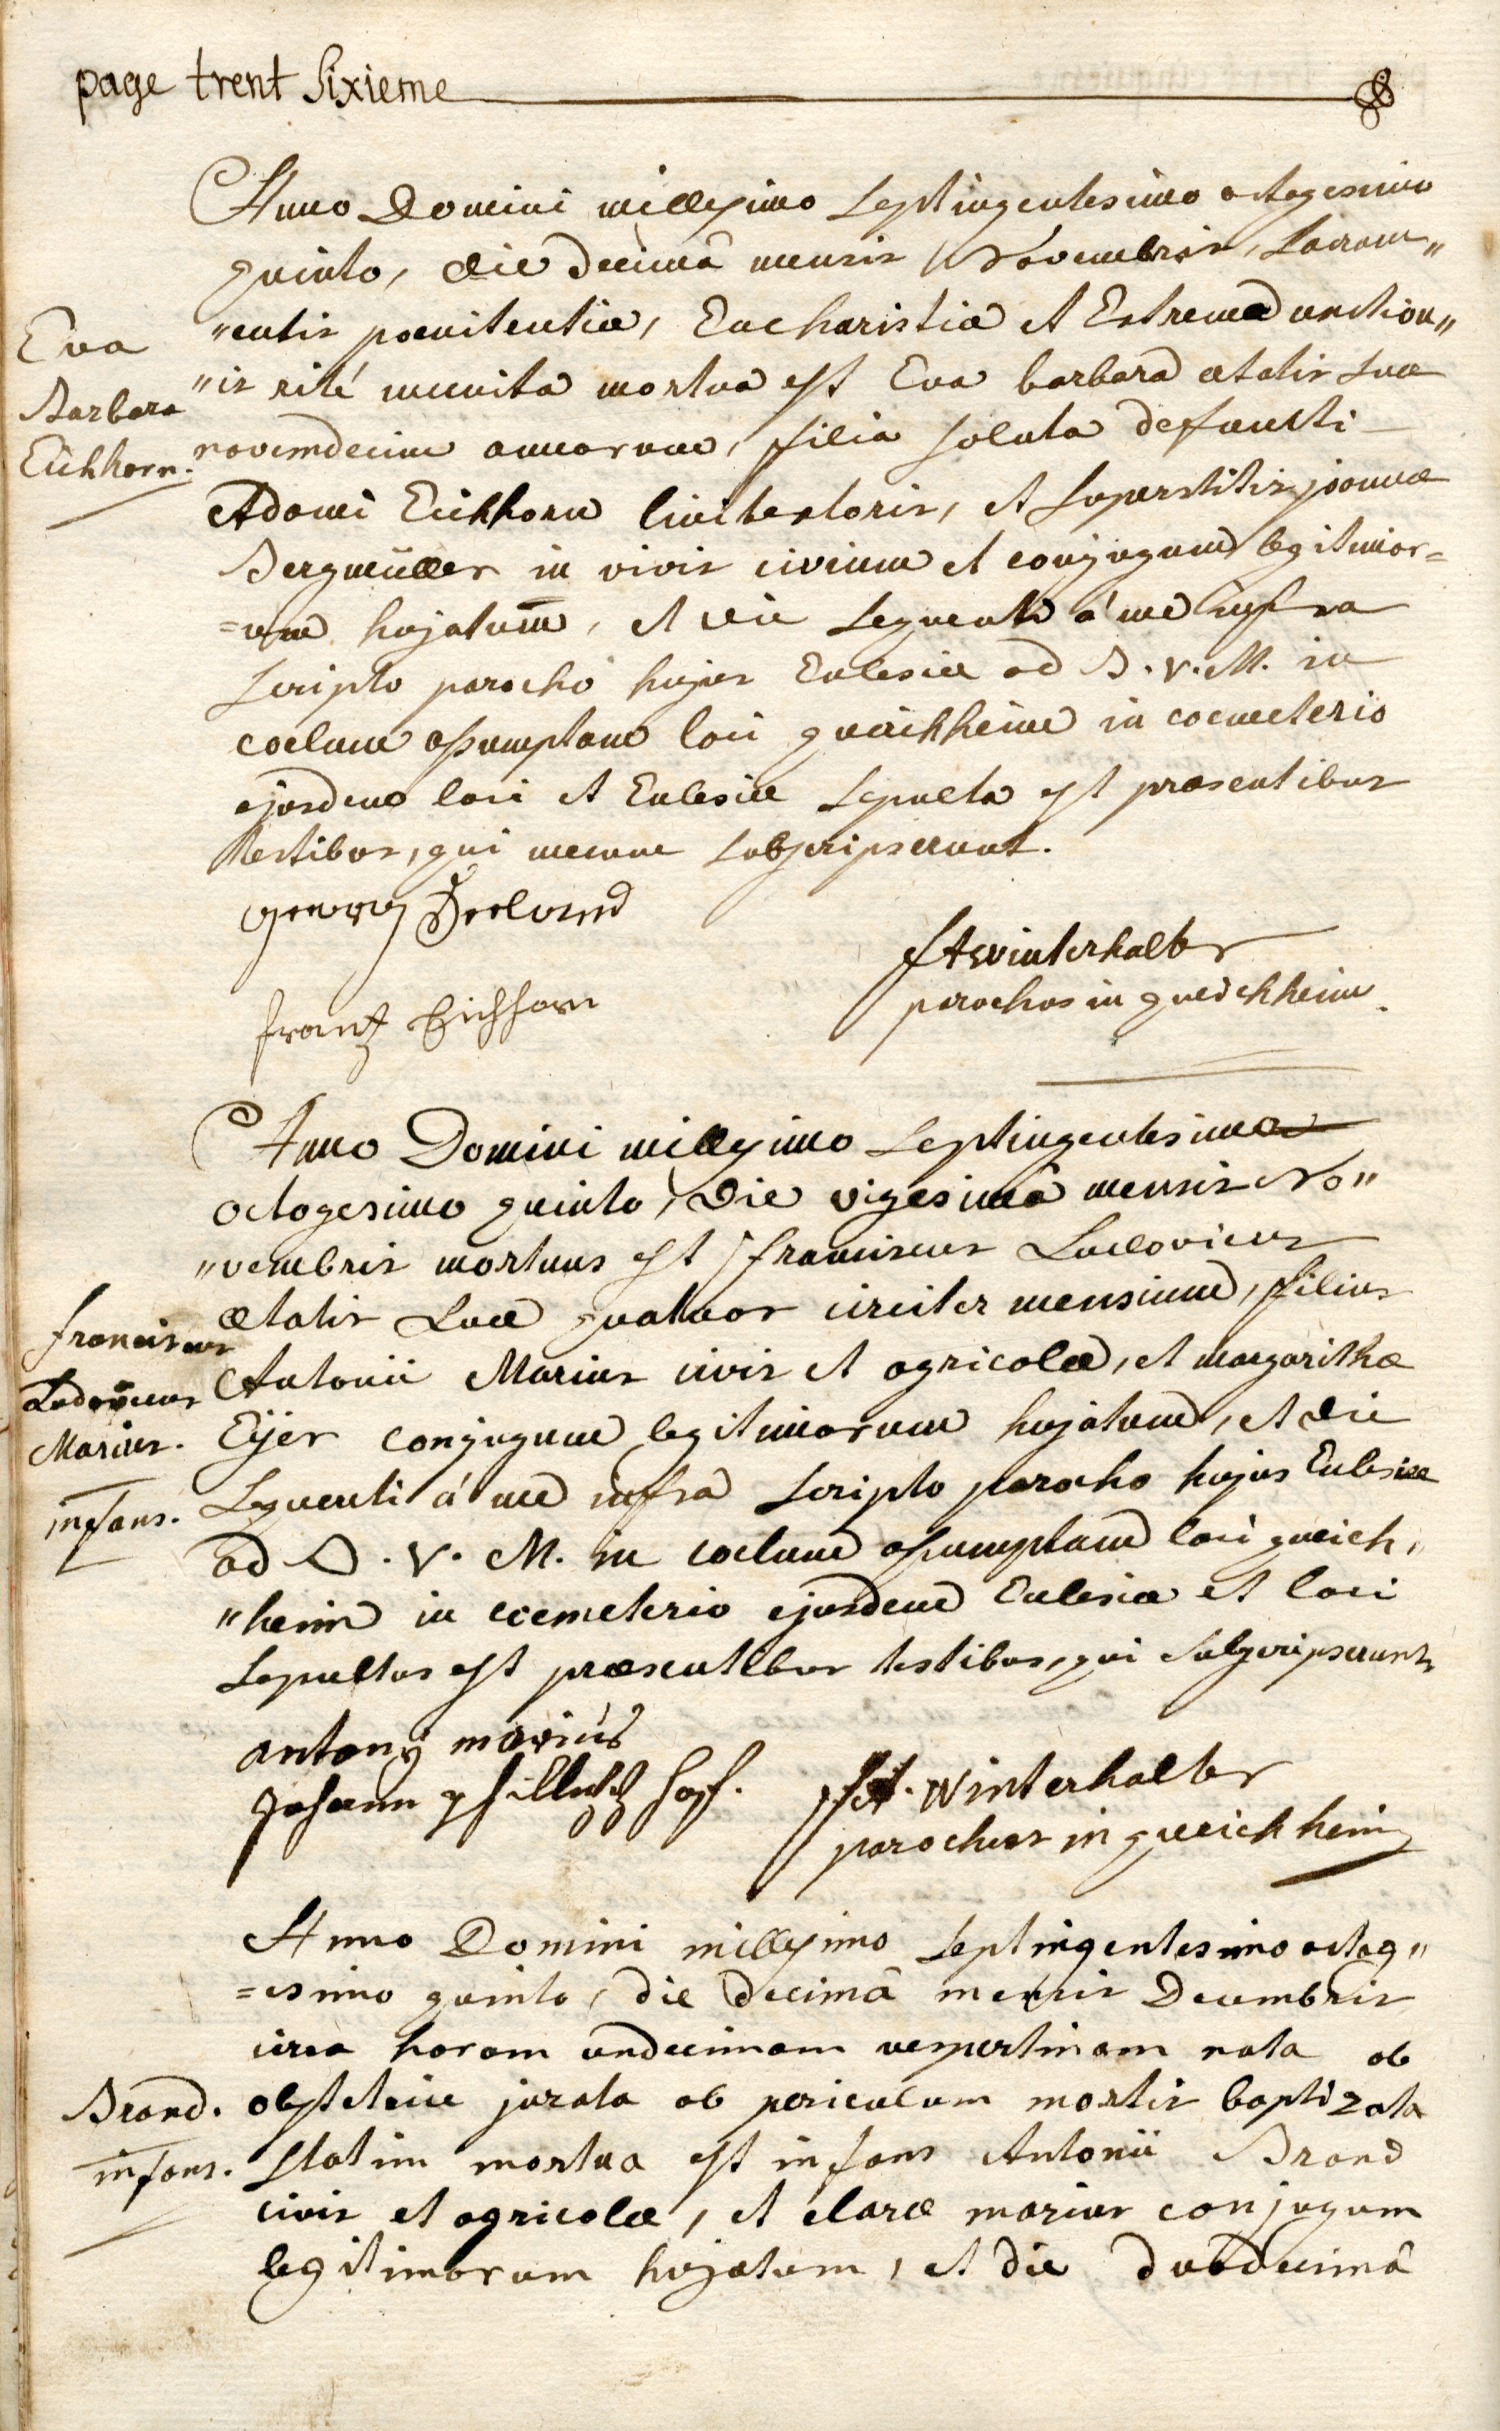 page trent Sixieme
Anno Domini millesimo Septingentesimo octogesimo
quinto, die decimâ mensis Novembris, Sacram„
„entis poenitentiæ, Eucharistiæ et Extremæ unction„
„is rité munita mortua est Eva barbara ætatis suæ
novemdecim annorum, filia soluta defuncti
Adami Eichhorn linitextoris, et superstitis joannæ
Bergmüller in vivis civium et conjugum legitimor=
=um hujatum, et die sequenti á me infra
scripto parocho hujus Eclesiæ ad B. V. M. in
coelum assumptam loci queichheim in coemeterio
ejusdem loci et Eclesiæ sepulta est præsentibus
testibus, qui mecum subscripserunt.
Eva
Barbara
Eichhorn.
georg
frantz Eichhorn
fA winterhalter
parochus in queichheim.
Anno Domini millesimo Septingentesimo
octogesimo quinto, die vigesimâ mensis No„
„vembris mortuus est franciscus Ludovicus
ætatis suæ quatuor circiter mensium, filius
Antonii Marius civis et agricolæ, et margarithæ
Eijer conjugum legitimorum hujatum, et die
sequenti á me infra scripto parocho hujus Eclesiæ
ad B. V. M. in coelum assumptam loci queich„
„heim in coemeterio ejusdem Eclesiæ et loci
Sepultus est præsentibus testibus, qui subscripserunt
franciscus
Ludovicus
Marius.
infans.
antony mariús
Johann hopf.
fA. Winterhalter
parochus in queichheim
Anno Domini millesimo Septingentesimo octog„
=esimo quinto, die decimâ mensis Decembris
circa horam undecimam vespertinam nata ab
obstetrice jurata ob periculum mortis baptizata
statim mortua est infans Antonii Brand
civis et agricolæ, et claræ marius conjugum
legitimorum hujatum, et die duodecimâ
Brand.
infans.